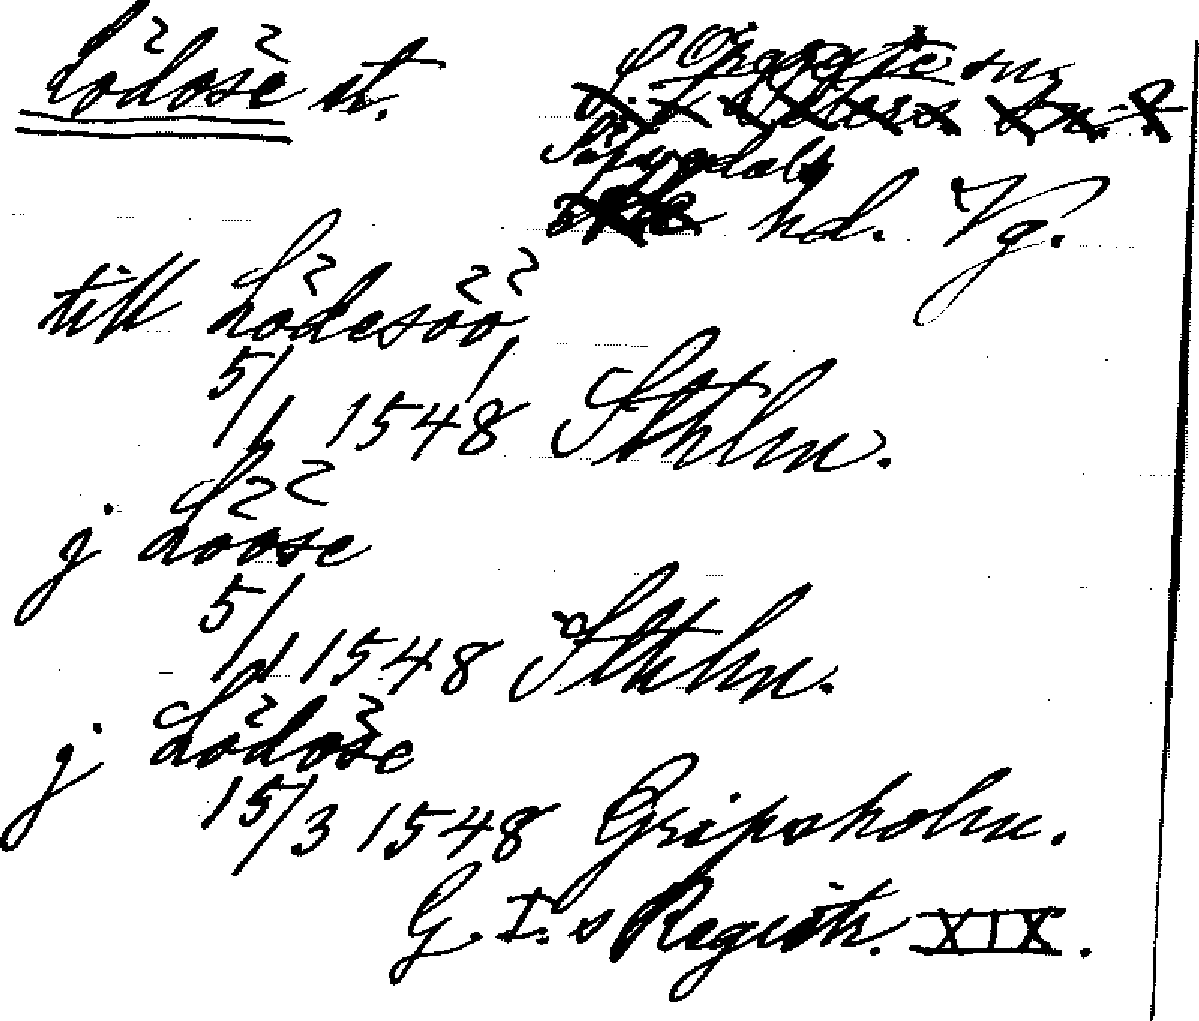 Lödöse st.
Örgryte sn,
Sävedals
hd. Vg.
till Lödesöö,
5/1 1548 Sthlm.
j Lööse
5/1 1548 Sthlm.
j Lödöse
15/3 1548 Gripsholm.
G. I:s Registr. XIX.